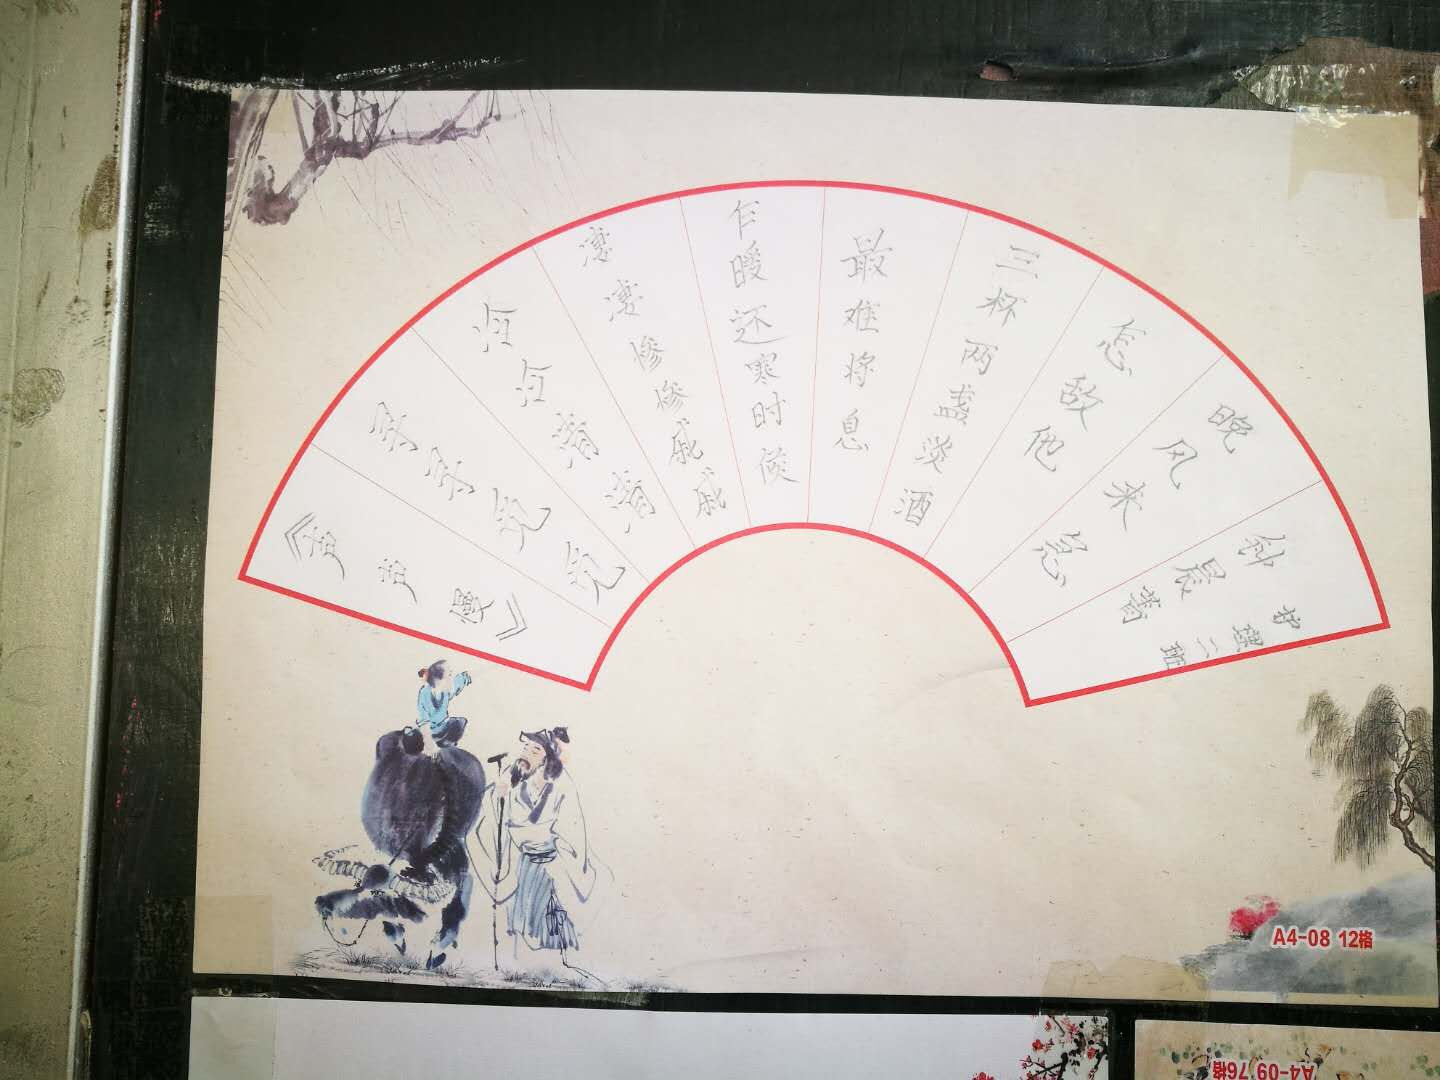 《声声慢》
寻寻觅觅
冷冷清清
凄凄惨惨戚戚
乍暖还寒时候
最难将息
三杯两盏淡酒
怎敌他
晚风来急
钟晨蕾
护理二班
A4-08 12格
A4-09 76格